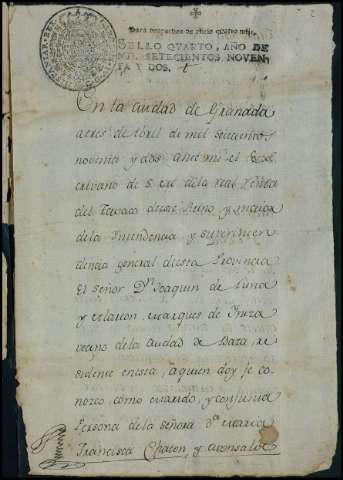 Para despachos de oficio quatro mrs.
SELLO QUARTO, AÑO DE
MIL SETECIENTOS NOVEN-
TA Y DOS.
En la Ciudad de Granada
a tres de Abril de mil setecientos
noventa y dos ante mi el Es
crivano de S. M. de la real Renta
del Tavaco de este Reino y
de la Yntendencia y superinten
dencia general de esta Provincia
El Señor Dn. Joaquin de
y Alarcon, Marques de
vecino de la Ciudad de Baza, re
sidente en esta, a quien doy fe co
nozco, como marido, y conjunta
Persona de la señora Da. Maria
Francisca Chacon, y